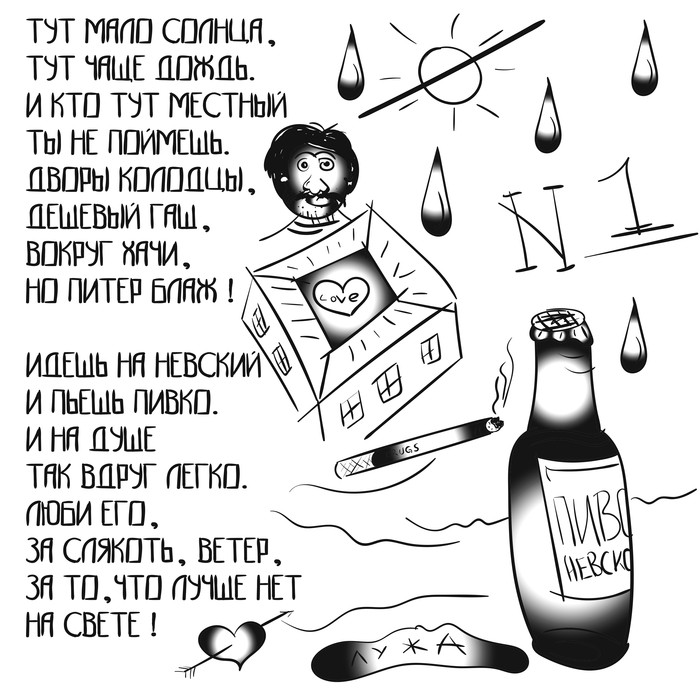 ТУТ МАЛО СОЛНЦА,
ТУТ ЧАЩЕ ДОЖДЬ.
И КТО ТУТ МЕСТНЫЙ
ТЫ НЕ ПОЙМЕШЬ.
ДВОРЫ КОЛОДЦЫ,
ДЕШЕВЫЙ ГАШ,
ВОКРУГ ХАЧИ,
НО ПИТЕР БЛАЖ !
ИДЕШЬ НА НЕВСКИЙ
И ПЬЕШЬ ПИВКО.
И НА ДУШЕ
ТАК ВДРУГ ЛЕГКО.
ЛЮБИ ЕГО,
ЗА СЛЯКОТЬ, ВЕТЕР,
ЗА ТО,ЧТО ЛУЧШЕ НЕТ
НА СВЕТЕ !
Love
N 1
ПИВО
НЕВСКО
ЛУЖА